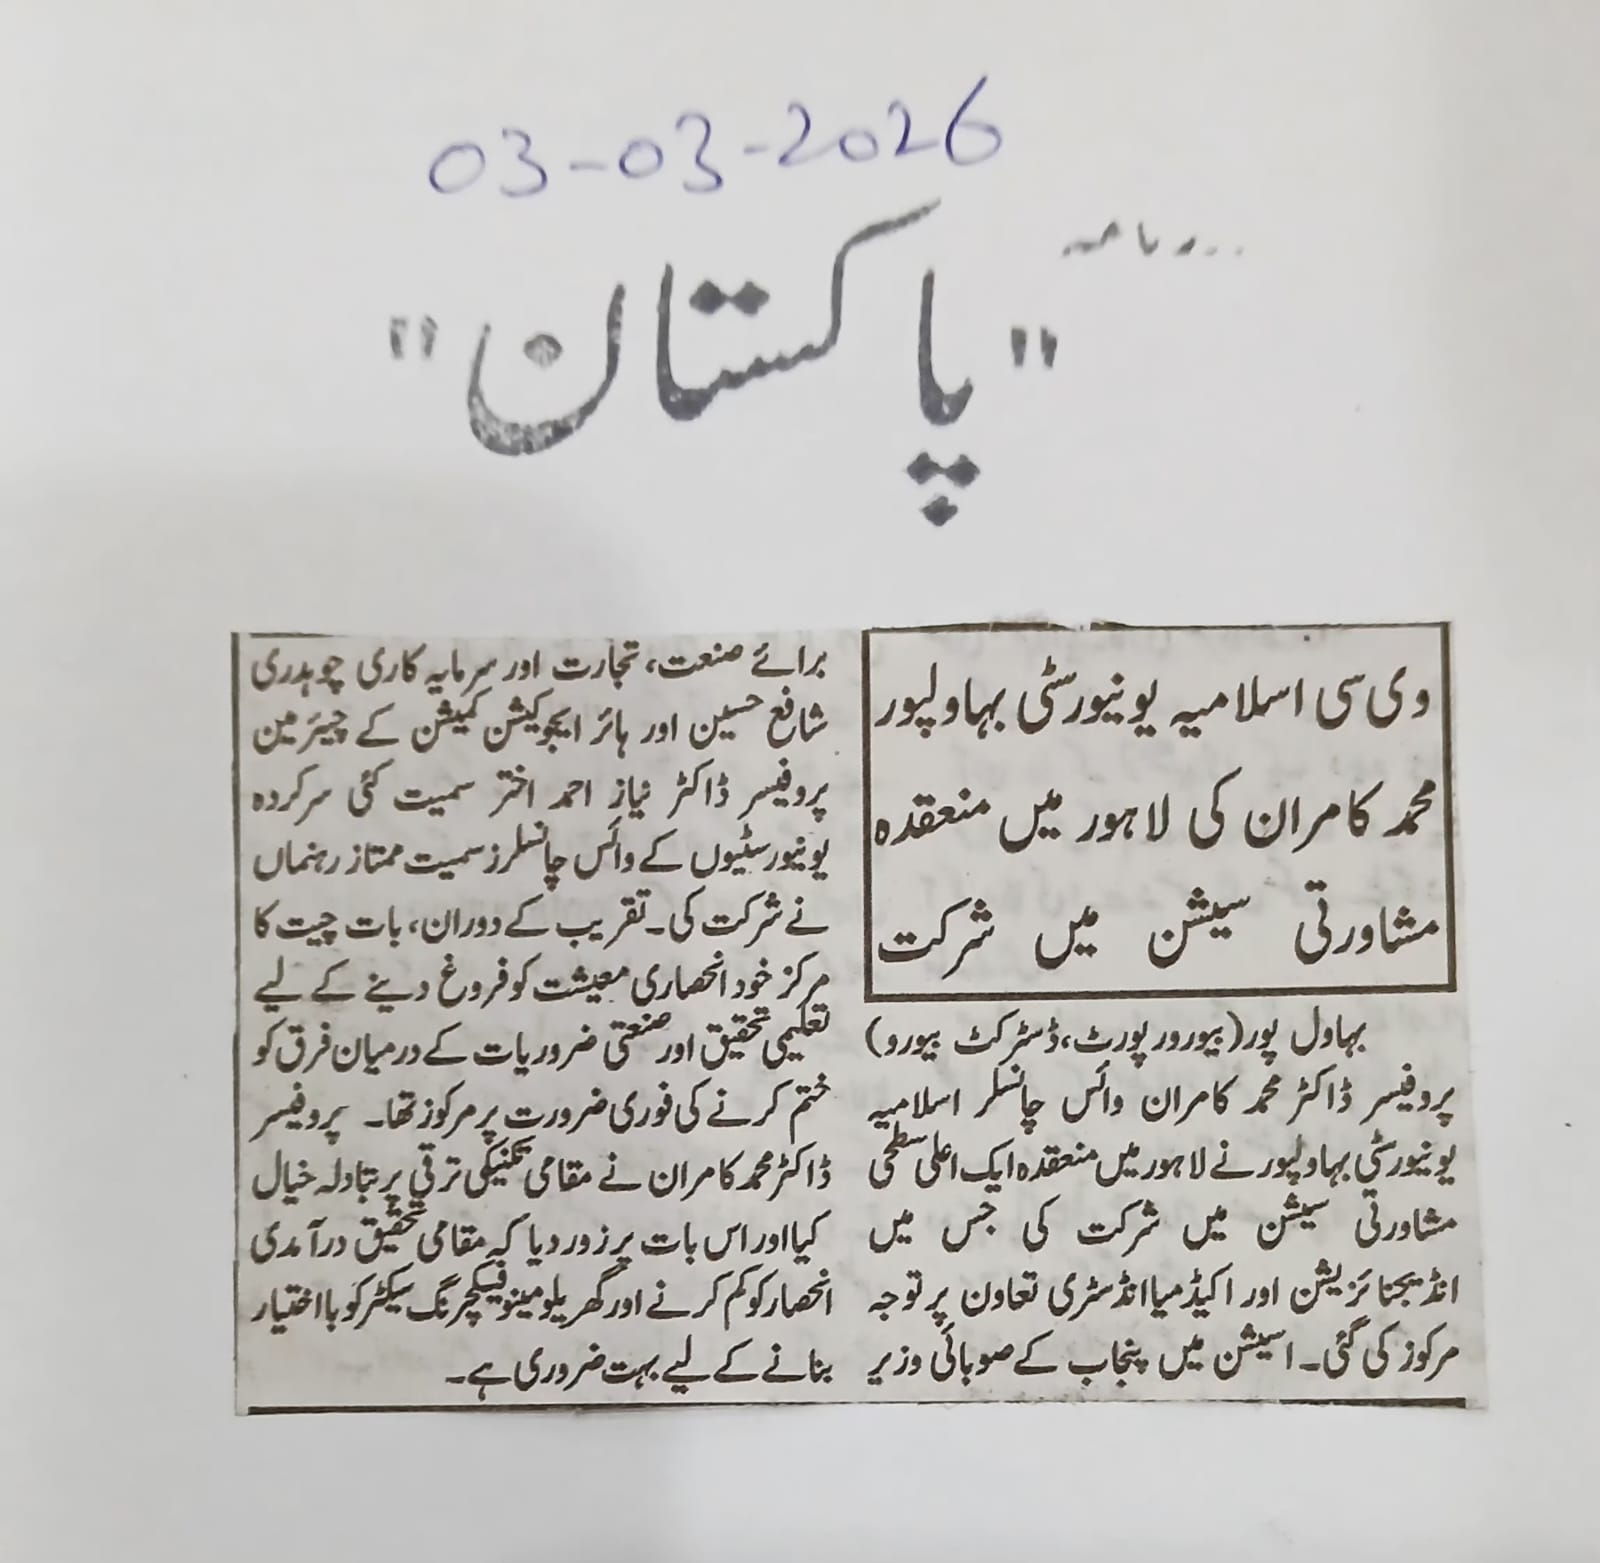 03-03-2026
روزنامہ
"پاکستان"
وی سی اسلامیہ یونیورسٹی بہاولپور
محمد کامران کی لاہور میں منعقدہ
مشاورتی سیشن میں شرکت
بہاول پور(بیورورپورٹ،ڈسٹرکٹ بیورو)
پروفیسر ڈاکٹر محمد کامران وائس چانسلر اسلامیہ
یونیورسٹی بہاولپور نے لاہور میں منعقدہ ایک اعلی سطحی
مشاورتی سیشن میں شرکت کی جس میں
انڈیجنائزیشن اور اکیڈمیا انڈسٹری تعاون پر توجہ
مرکوز کی گئی۔ اسیشن میں پنجاب کے صوبائی وزیر
برائے صنعت، تجارت اور سرمایہ کاری چوہدری
شافع حسین اور ہائر ایجوکیشن کمیشن کے چیئرمین
پروفیسر ڈاکٹر نیاز احمد اختر سمیت کئی سرکردہ
یونیورسٹیوں کے وائس چانسلرز سمیت ممتاز رہنماں
نے شرکت کی۔ تقریب کے دوران، بات چیت کا
مرکز خود انحصاری معیشت کو فروغ دینے کے لیے
تعلیمی تحقیق اور صنعتی ضروریات کے درمیان فرق کو
ختم کرنے کی فوری ضرورت پر مرکوز تھا۔ پروفیسر
ڈاکٹر محمد کامران نے مقامی تکنیکی ترقی پر تبادلہ خیال
کیا اور اس بات پر زور دیا کہ مقامی تحقیق درآمدی
انحصار کو کم کرنے اور گھریلو مینوفیکچرنگ سیکٹر کو بااختیار
بنانے کے لیے بہت ضروری ہے۔